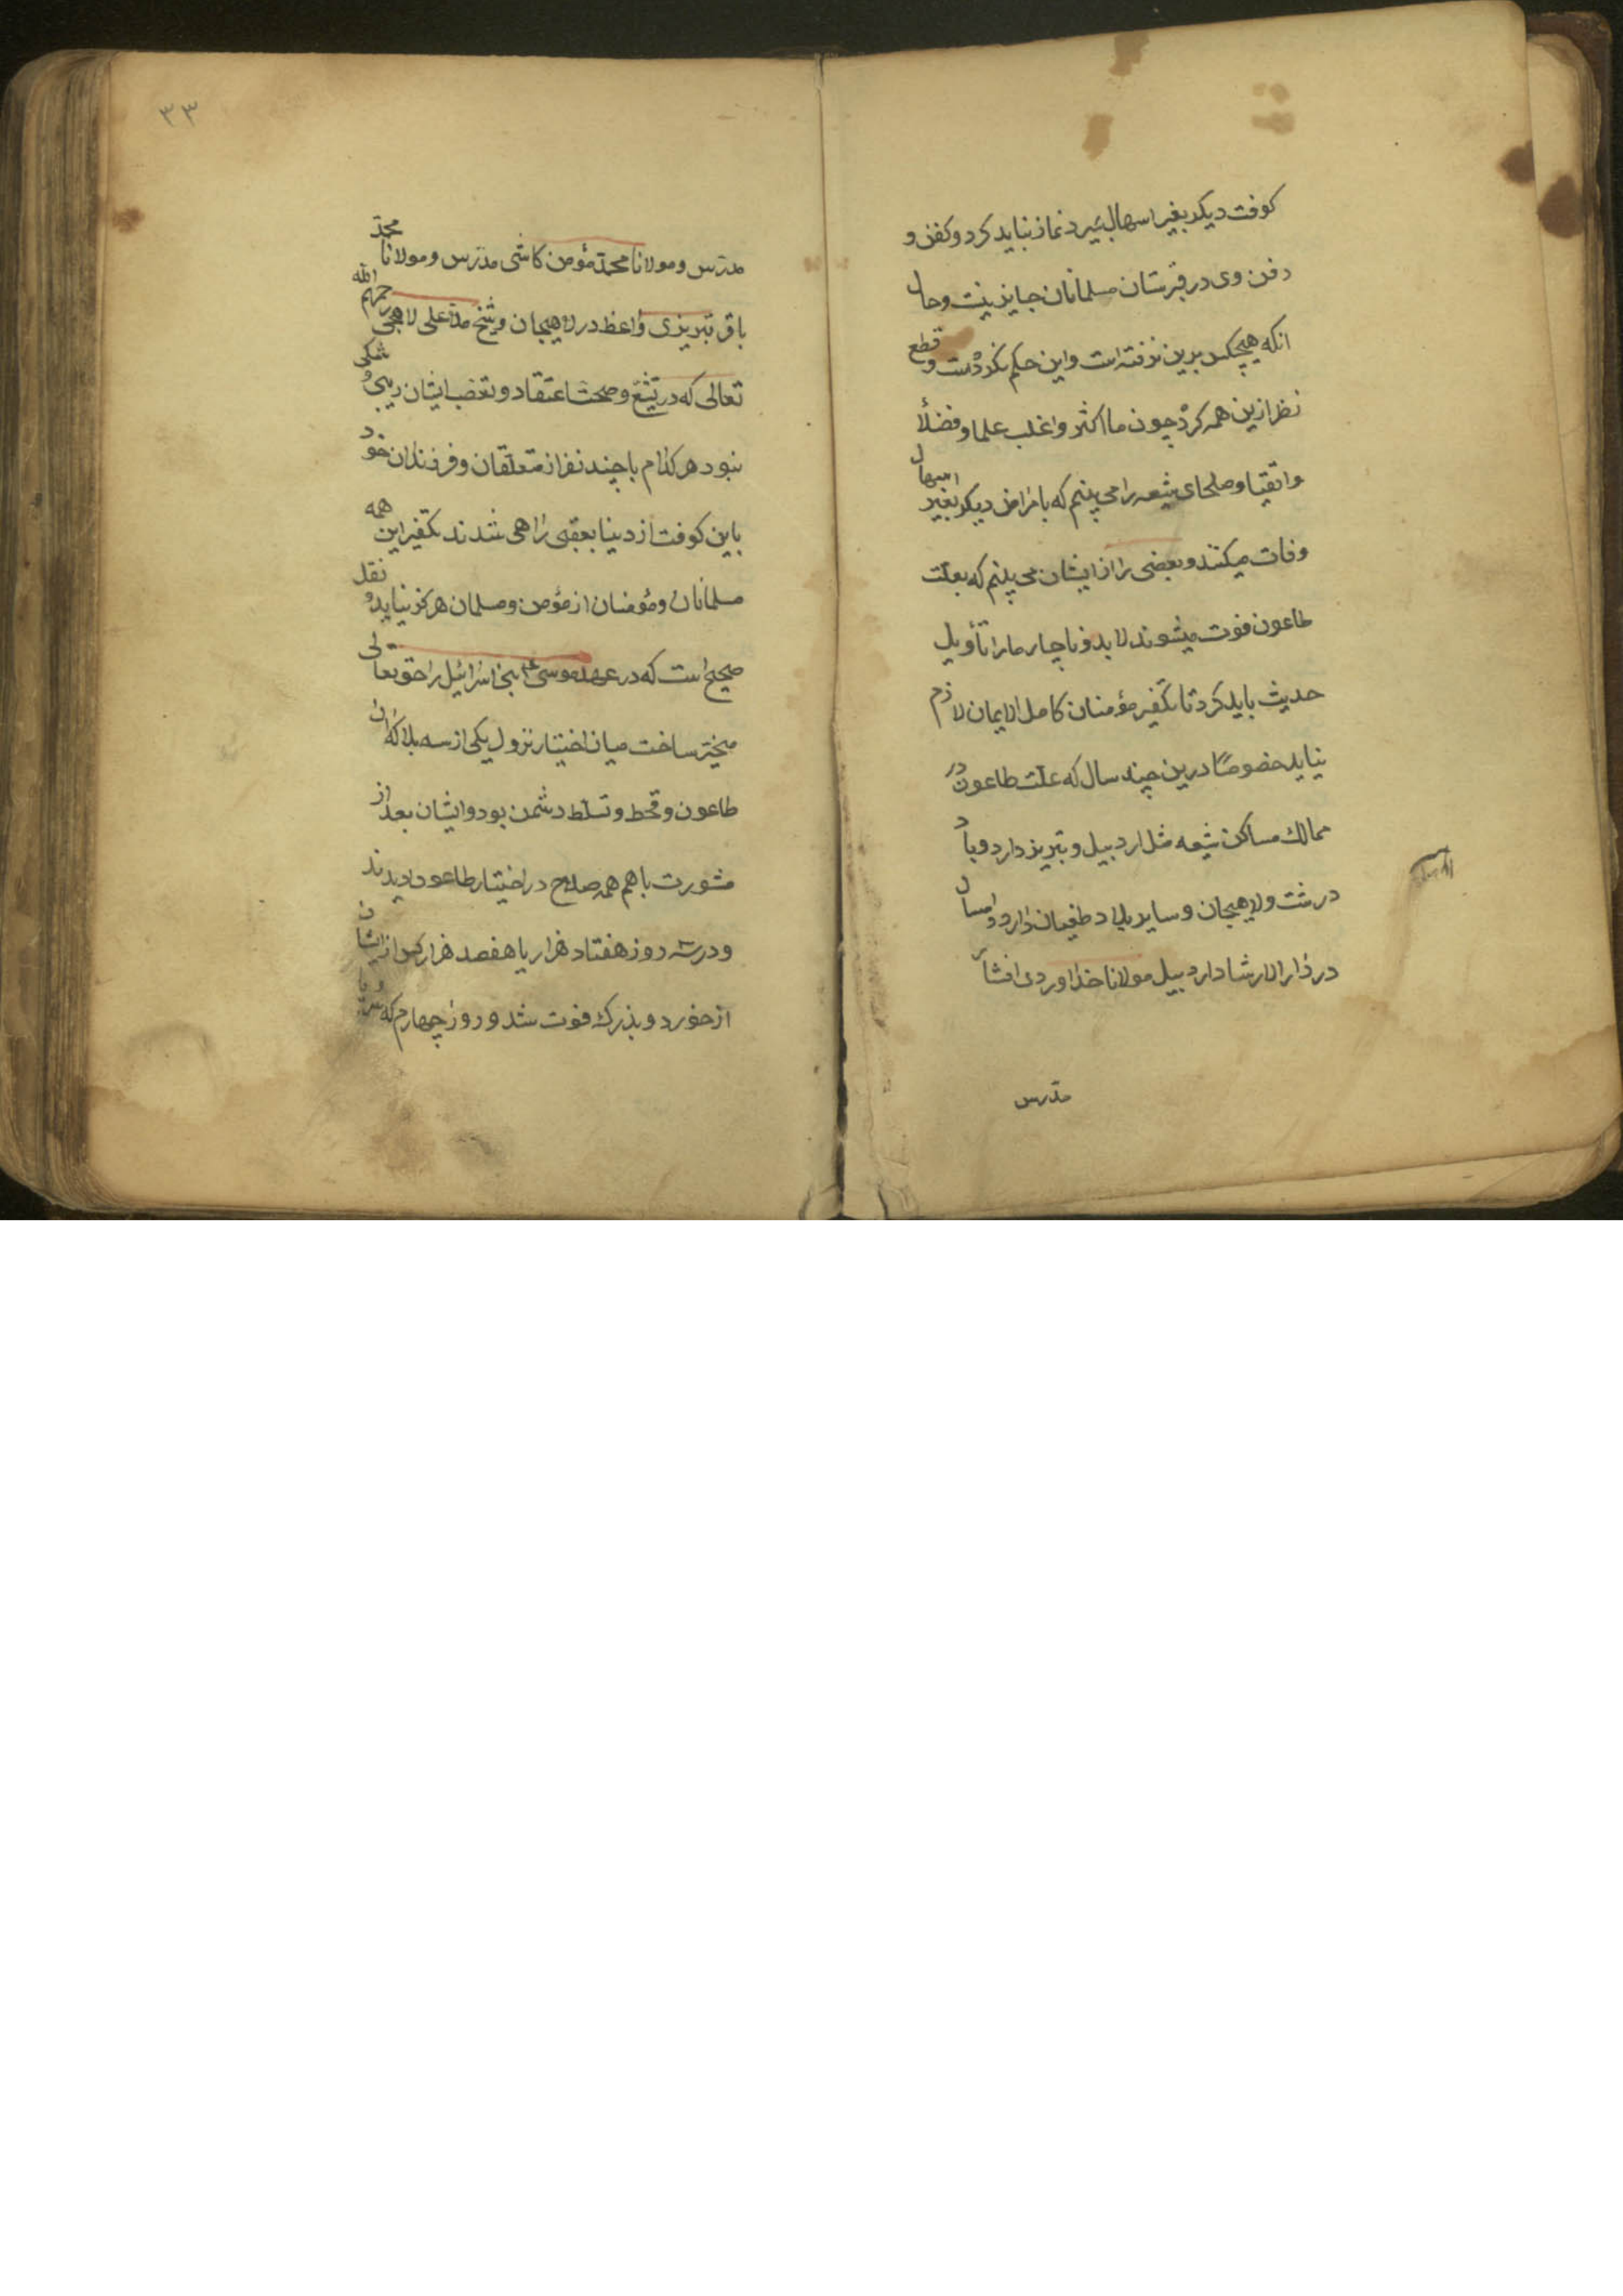 کوفت دیکر بغیر اسهال بمیرد نماز نباید کرد و کفن و
دفن وی در قبرستان مسلمانان جایز نیست و حال
انکه هیچکس برین نرفته است و این حکم نکرده است و قطع
نظر ازین همه کرده چون ما اکثر و اغلب علما و فضلا
و اتقیا و صلحای شیعه را می بینم که بامراض دیکر بغیر اسهال
وفات میکنند و بعضی را از ایشان می بینم که بعلت
طاعون فوت میشوند لابد و ناچار ما را تأویل
حدیث باید کرد تا تکفیر مؤمنان کامل الایمان لازم
نیاید خصوصًا درین چند سال که علت طاعون در
ممالک مساکن شیعه مثل اردبیل و تبریز دارد و باد
در رشت و لاهیجان و سایر بلاد طغیان دارد و امسال
در دار الارشاد اردبیل مولانا خداوردی افشار
مدرس
۳۳
مدرس و مولانا محمد مؤمن کاشی مدرس و مولانا محمد
باقر تبریزی واعظ در لاهیجان و شیخ ملا علی لاهجی رحمهم الله
تعالی که در تشیّع و صحت اعتقاد و تعصب ایشان ریبی و شکی
نبود هر کدام با چند نفر از متعلّقان و فرزندان خود
باین کوفت از دنیا بعقبی راهی شدند تکفیر این همه
مسلمانان و مؤمنان از مؤمن و مسلمان هرکز نیاید و نقل
صحیح است که در عهد موسی ع بنی اسرائیل را حق تعالی
مخیّر ساخت میان اختیار نزول یکی از سه بلا که آن
طاعون و قحط و تسلّط دشمن بود و ایشان بعد از
مشورت با هم همه صلاح در اختیار طاعون دیدند
و در سه روز هفتاد هزار یا هفصد هزار کس از ایشان
از خورد و بزرک فوت شد و روز چهارم که